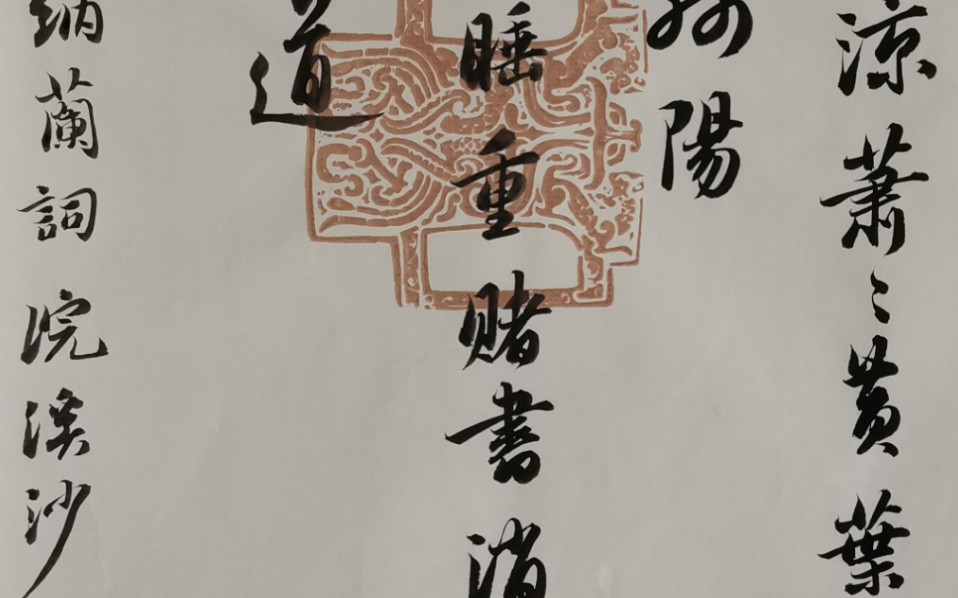 涼蕭〻黃葉
陽
睡重賭書消
道
納蘭詞浣溪沙